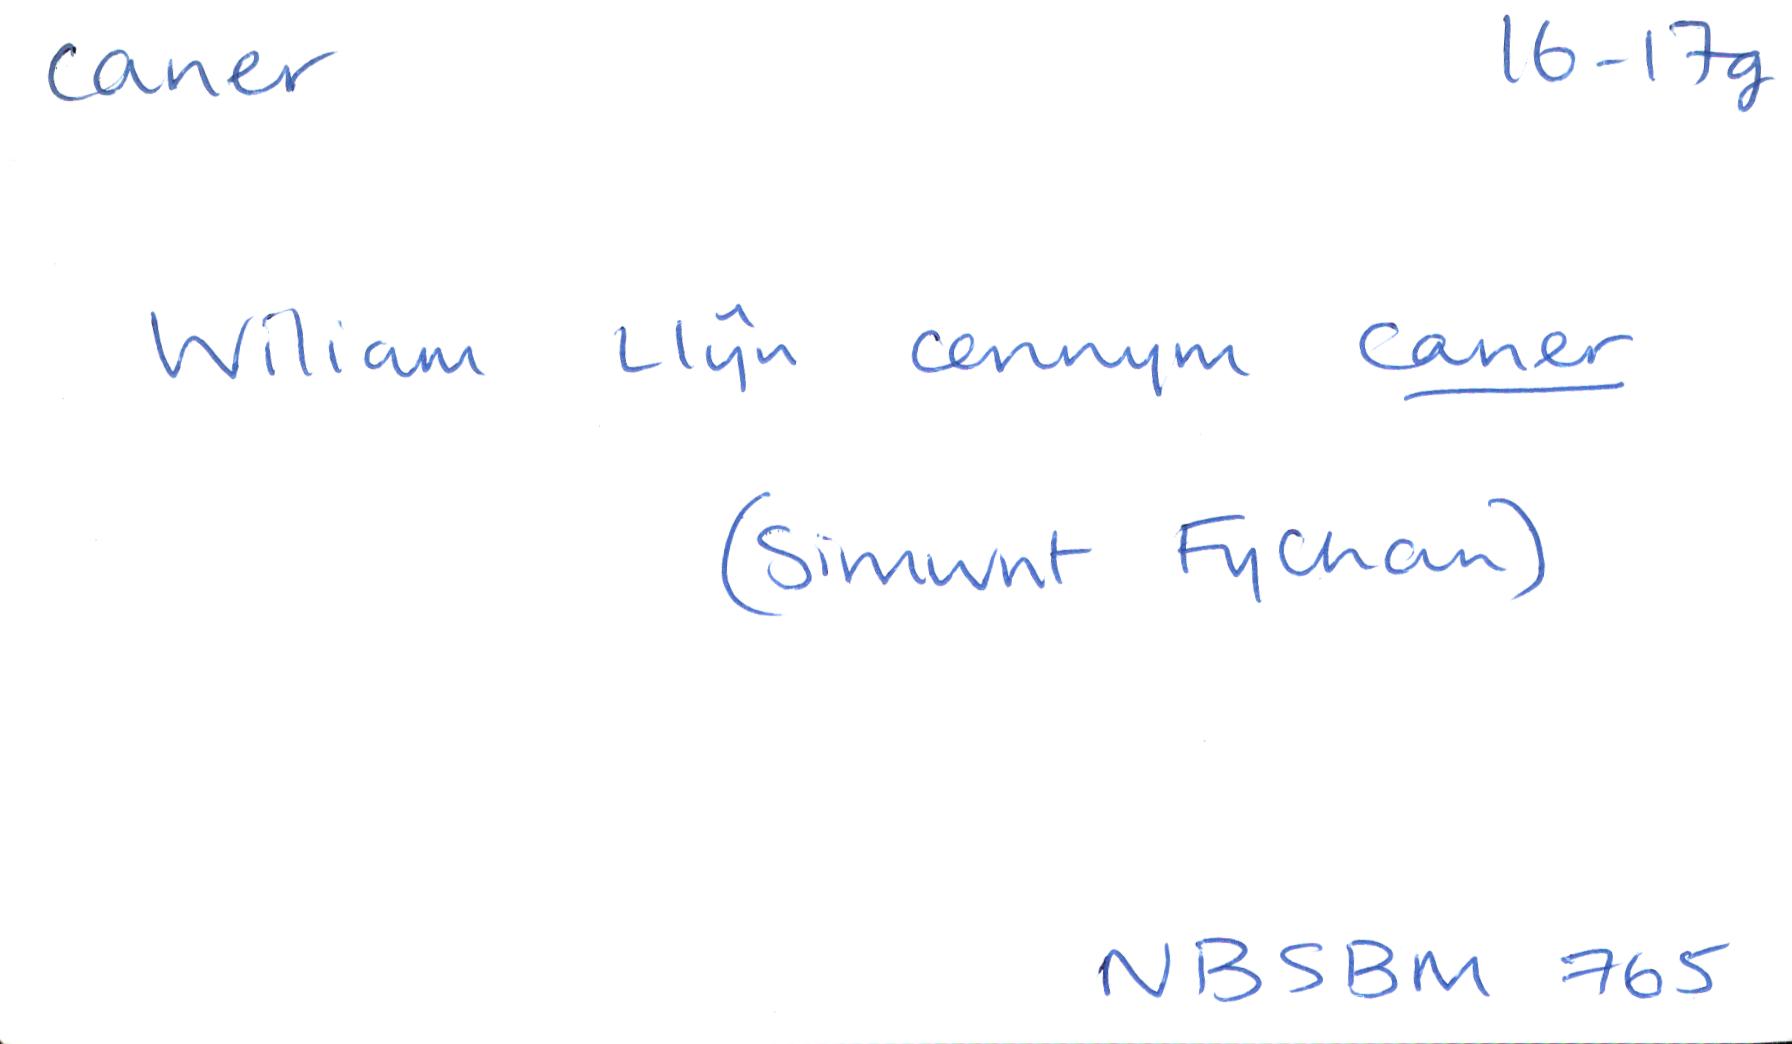 caner 16-17g
Wiliam Llŷn cennym caner
(Simwnt Fychan)
NBSBM 765